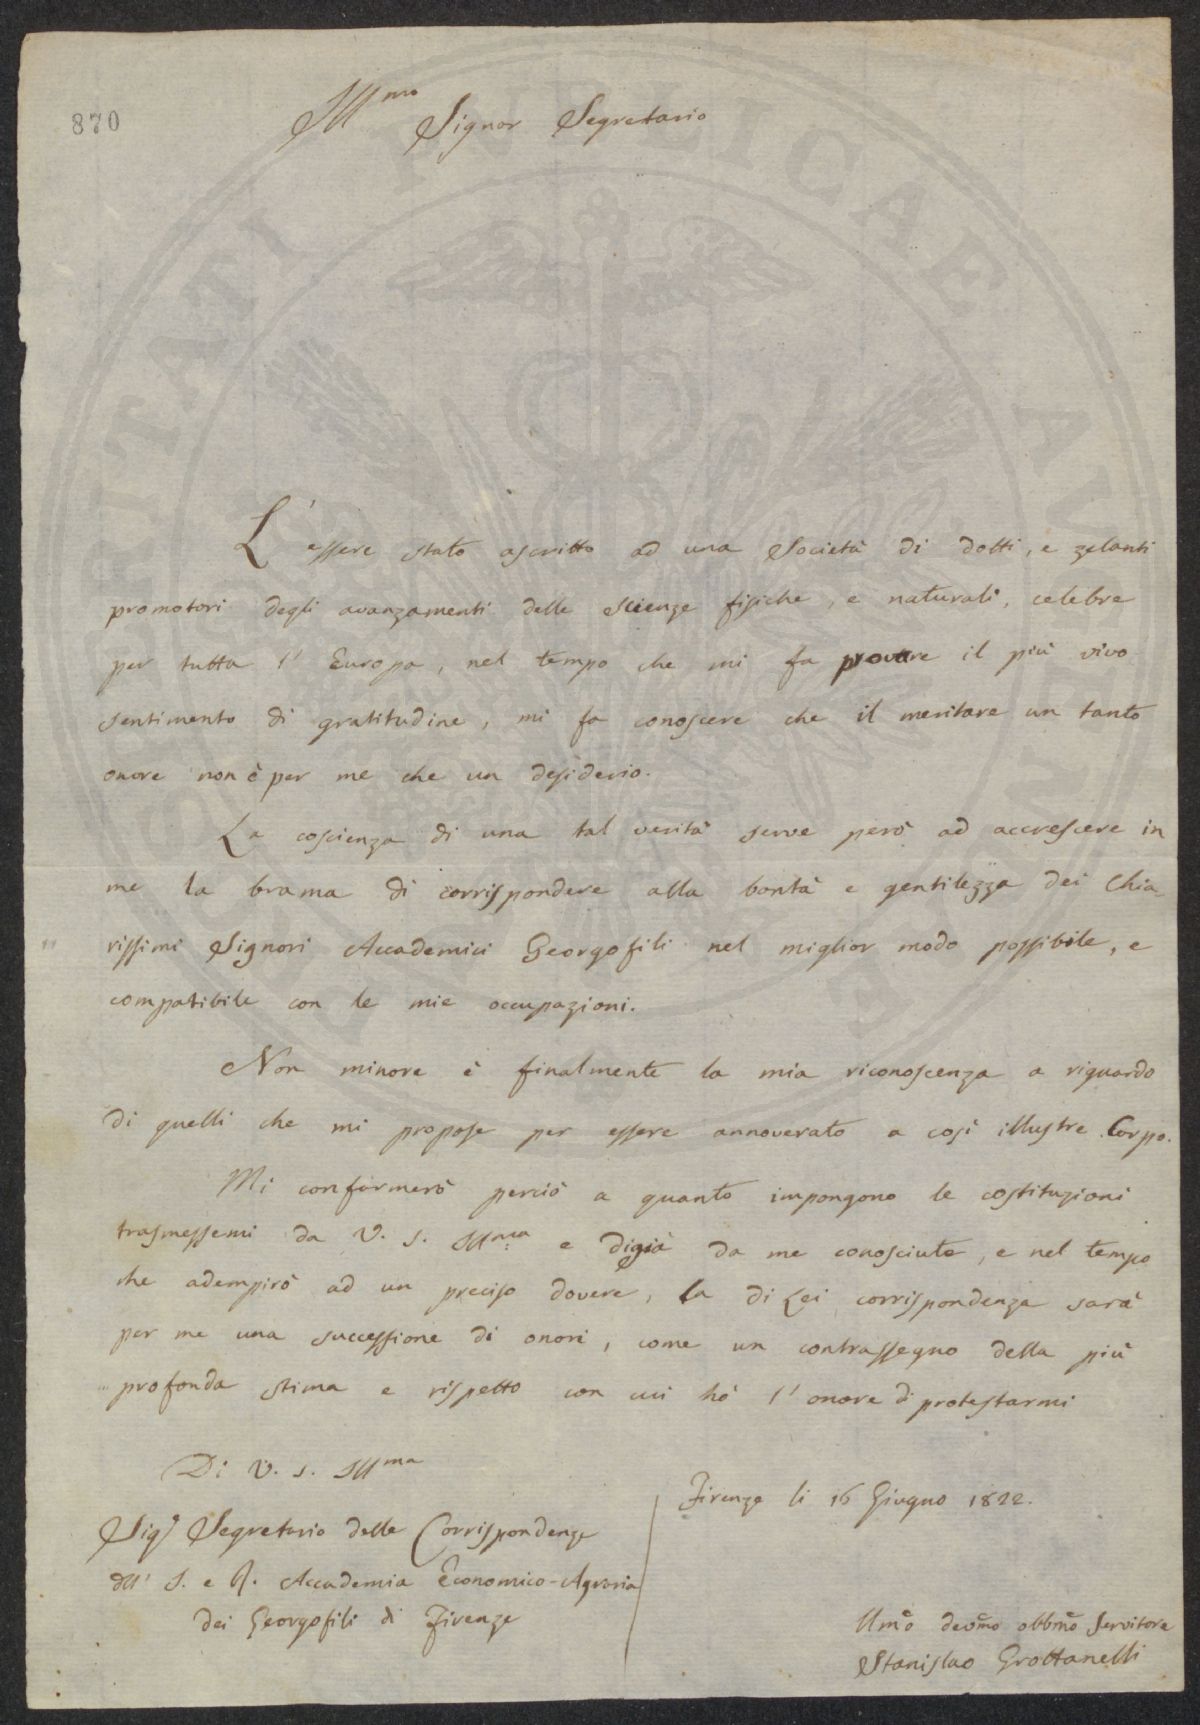 870
Ill.mo Signor Segretario
L'essere stato ascritto ad una Società di dotti, e zelanti
promotori degli avanzamenti delle scienze fisiche, e naturali, celebre
per tutta l'Europa, nel tempo che mi fa provare il più vivo
sentimento di gratitudine, mi fa conoscere che il meritare un tanto
onore non è per me che un desiderio.
La coscienza di una tal verità serve però ad accrescere in
me la brama di corrispondere alla bontà e gentilezza dei Chia-
rissimi Signori Accademici Georgofili nel miglior modo possibile, e
compatibile con le mie occupazioni.
Non minore è finalmente la mia riconoscenza a riguardo
di quelli che mi propose per essere annoverato a così illustre Corpo.
Mi conformerò perciò a quanto impongono le costituzioni
trasmessemi da V. S. Ill.ma e digià da me conosciute, e nel tempo
che adempirò ad un preciso dovere, la di Lei corrispondenza sarà
per me una successione di onori, come un contrassegno della più
profonda stima e rispetto con cui hò l'onore di protestarmi
Di V. S. Ill.ma
Firenze li 16 Giugno 1822.
Sig.r Segretario delle Corrispondenze
dell' I. e R. Accademia Economico-Agraria
dei Georgofili di Firenze
Um͠o devm͠o obbm͠o Servitore
Stanislao Grottanelli